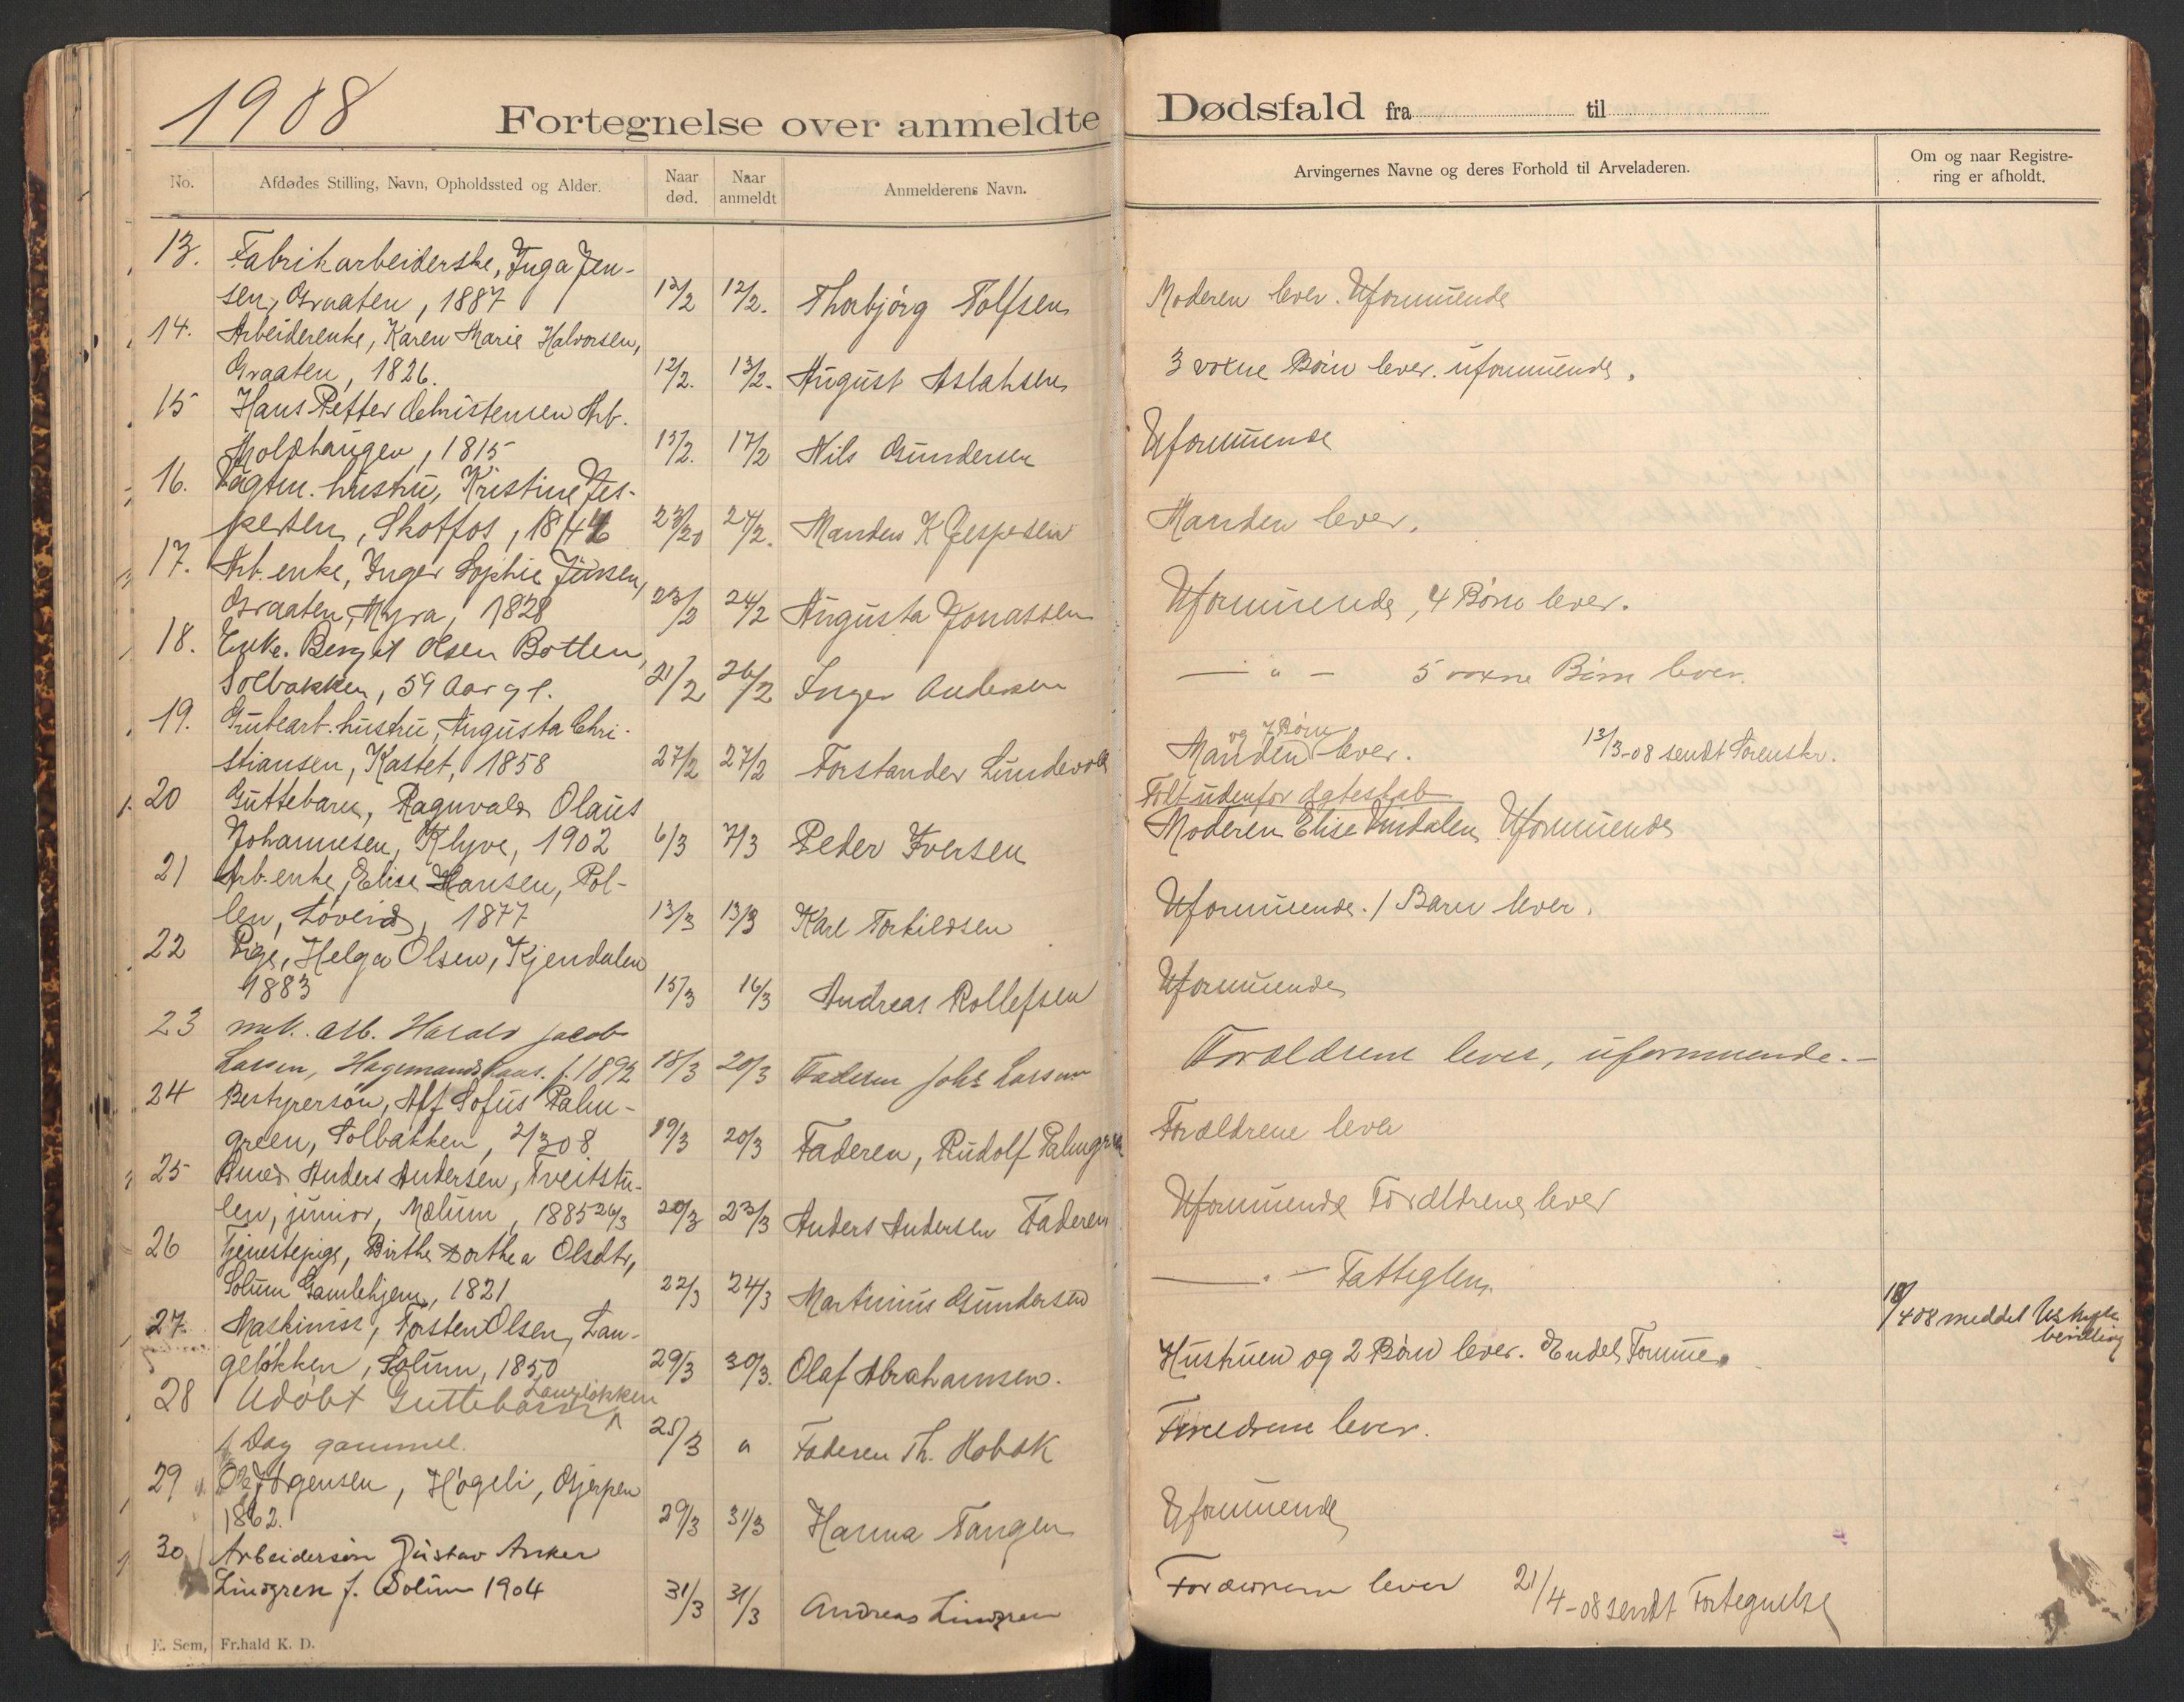 1908
Fortegnelse over anmeldte Dødsfald fra til
No. Afdødes Stilling, Navn, Opholdssted og Alder. Naar død. Naar anmeldt Anmelderens Navn. Arvingernes Navne og deres Forhold til Arveladeren. Om og naar Registrering er afholdt.
13. Fabrikarbeiderske, Inga Jen-
sen, Graaten, 1887 12/2 12/2. Thorbjørg Tolfsen Moderen lever. Uformuende
14. Arbeiderenke, Karen Marie Halvorsen,
Graaten, 1826. 12/2. 13/2. August Aslaksen 3 voxne Børn lever. uformuende.
15 Hans Petter Christensen Arb.
Moldhaugen, 1815 15/2. 17/2 Nils Gundersen Uformuende
16. Vagtm. hustru, Kristine Jes-
persen, Skotfos, 1844 23/2 24/2. Manden K Jespersen Manden lever.
17. Arb. enke, Inger Sophie Jensen,
Graaten, Myra, 1828 23/2 24/2 Augusta Jonassen Uformuende, 4 Børn lever.
18. Enke. Bergit Olsen Botten,
Solbakken, 59 Aar gl. 21/2 26/2 Inger Andersen — " — 5 voxne Børn lever.
19. Grubearb. hustru, Augusta Chri-
stiansen, Kastet, 1858 27/2 27/2 Forstander Lundevold Manden og 7 Børn lever. 13/3-08 sendt Sorenskr.
20 Guttebarn, Ragnvald Olaus Født udenfor Ægteskab
Johannesen, Klyve, 1902 6/3 7/3 Peder Iversen Moderen Elise Uformuende
21 Arb. enke, Elise Hansen, Pol-
len, Løveid, 1877 13/3 13/3 Karl Torkildsen Uformuende. 1 Barn lever.
22 Pige, Helga Olsen, Kjendalen
1883 15/3 16/3 Andreas Rollefsen Uformuende
23 mek. arb. Harald Jacob
Larsen, f. 1892 18/3 20/3 Faderen Johs Larsen Forældrene lever, uformuende. —
24 Bestyrersøn, Alf Sofus Palm-
green, Solbakken, 2/3 08 19/3 20/3 Faderen, Rudolf Palmgreen Forældrene lever
25 Anders Andersen, Tveitstu-
len, junior, Mælum, 1885 26/3 20/3 23/3 Anders Andersen Faderen Uformuende Forældrene lever
26 Tjenestepige, Birthe Dorthea Olsdtr,
Solum Gamlehjem, 1821 22/3 24/3 Martinius Gundersen — " — Fattiglem.
27. Maskinist, Torsten Olsen, Lan- 18/4 08 meddelt Uskifte
geløkken, Solum, 1850 29/3 30/3. Olaf Abrahamsen. Hustruen og 2 Børn lever. Endel Formue. bevilling
28 Udøbt Guttebarn Langløkken
1 Dag gammel. 25/3 " Faderen Th. Hobæk Forældrene lever.
29 Ole Jørgensen, Høgeli, Gjerpen
1862. 29/3 31/3 Hanna Tangen Uformuende
30 Arbeidersøn Gustav Anker
Lindgren f. Solum 1904 31/3 31/3 Andreas Lindgren Forældrene lever 21/4-08 sendt Fortegnelse
E. Sem, Fr.hald K. D.